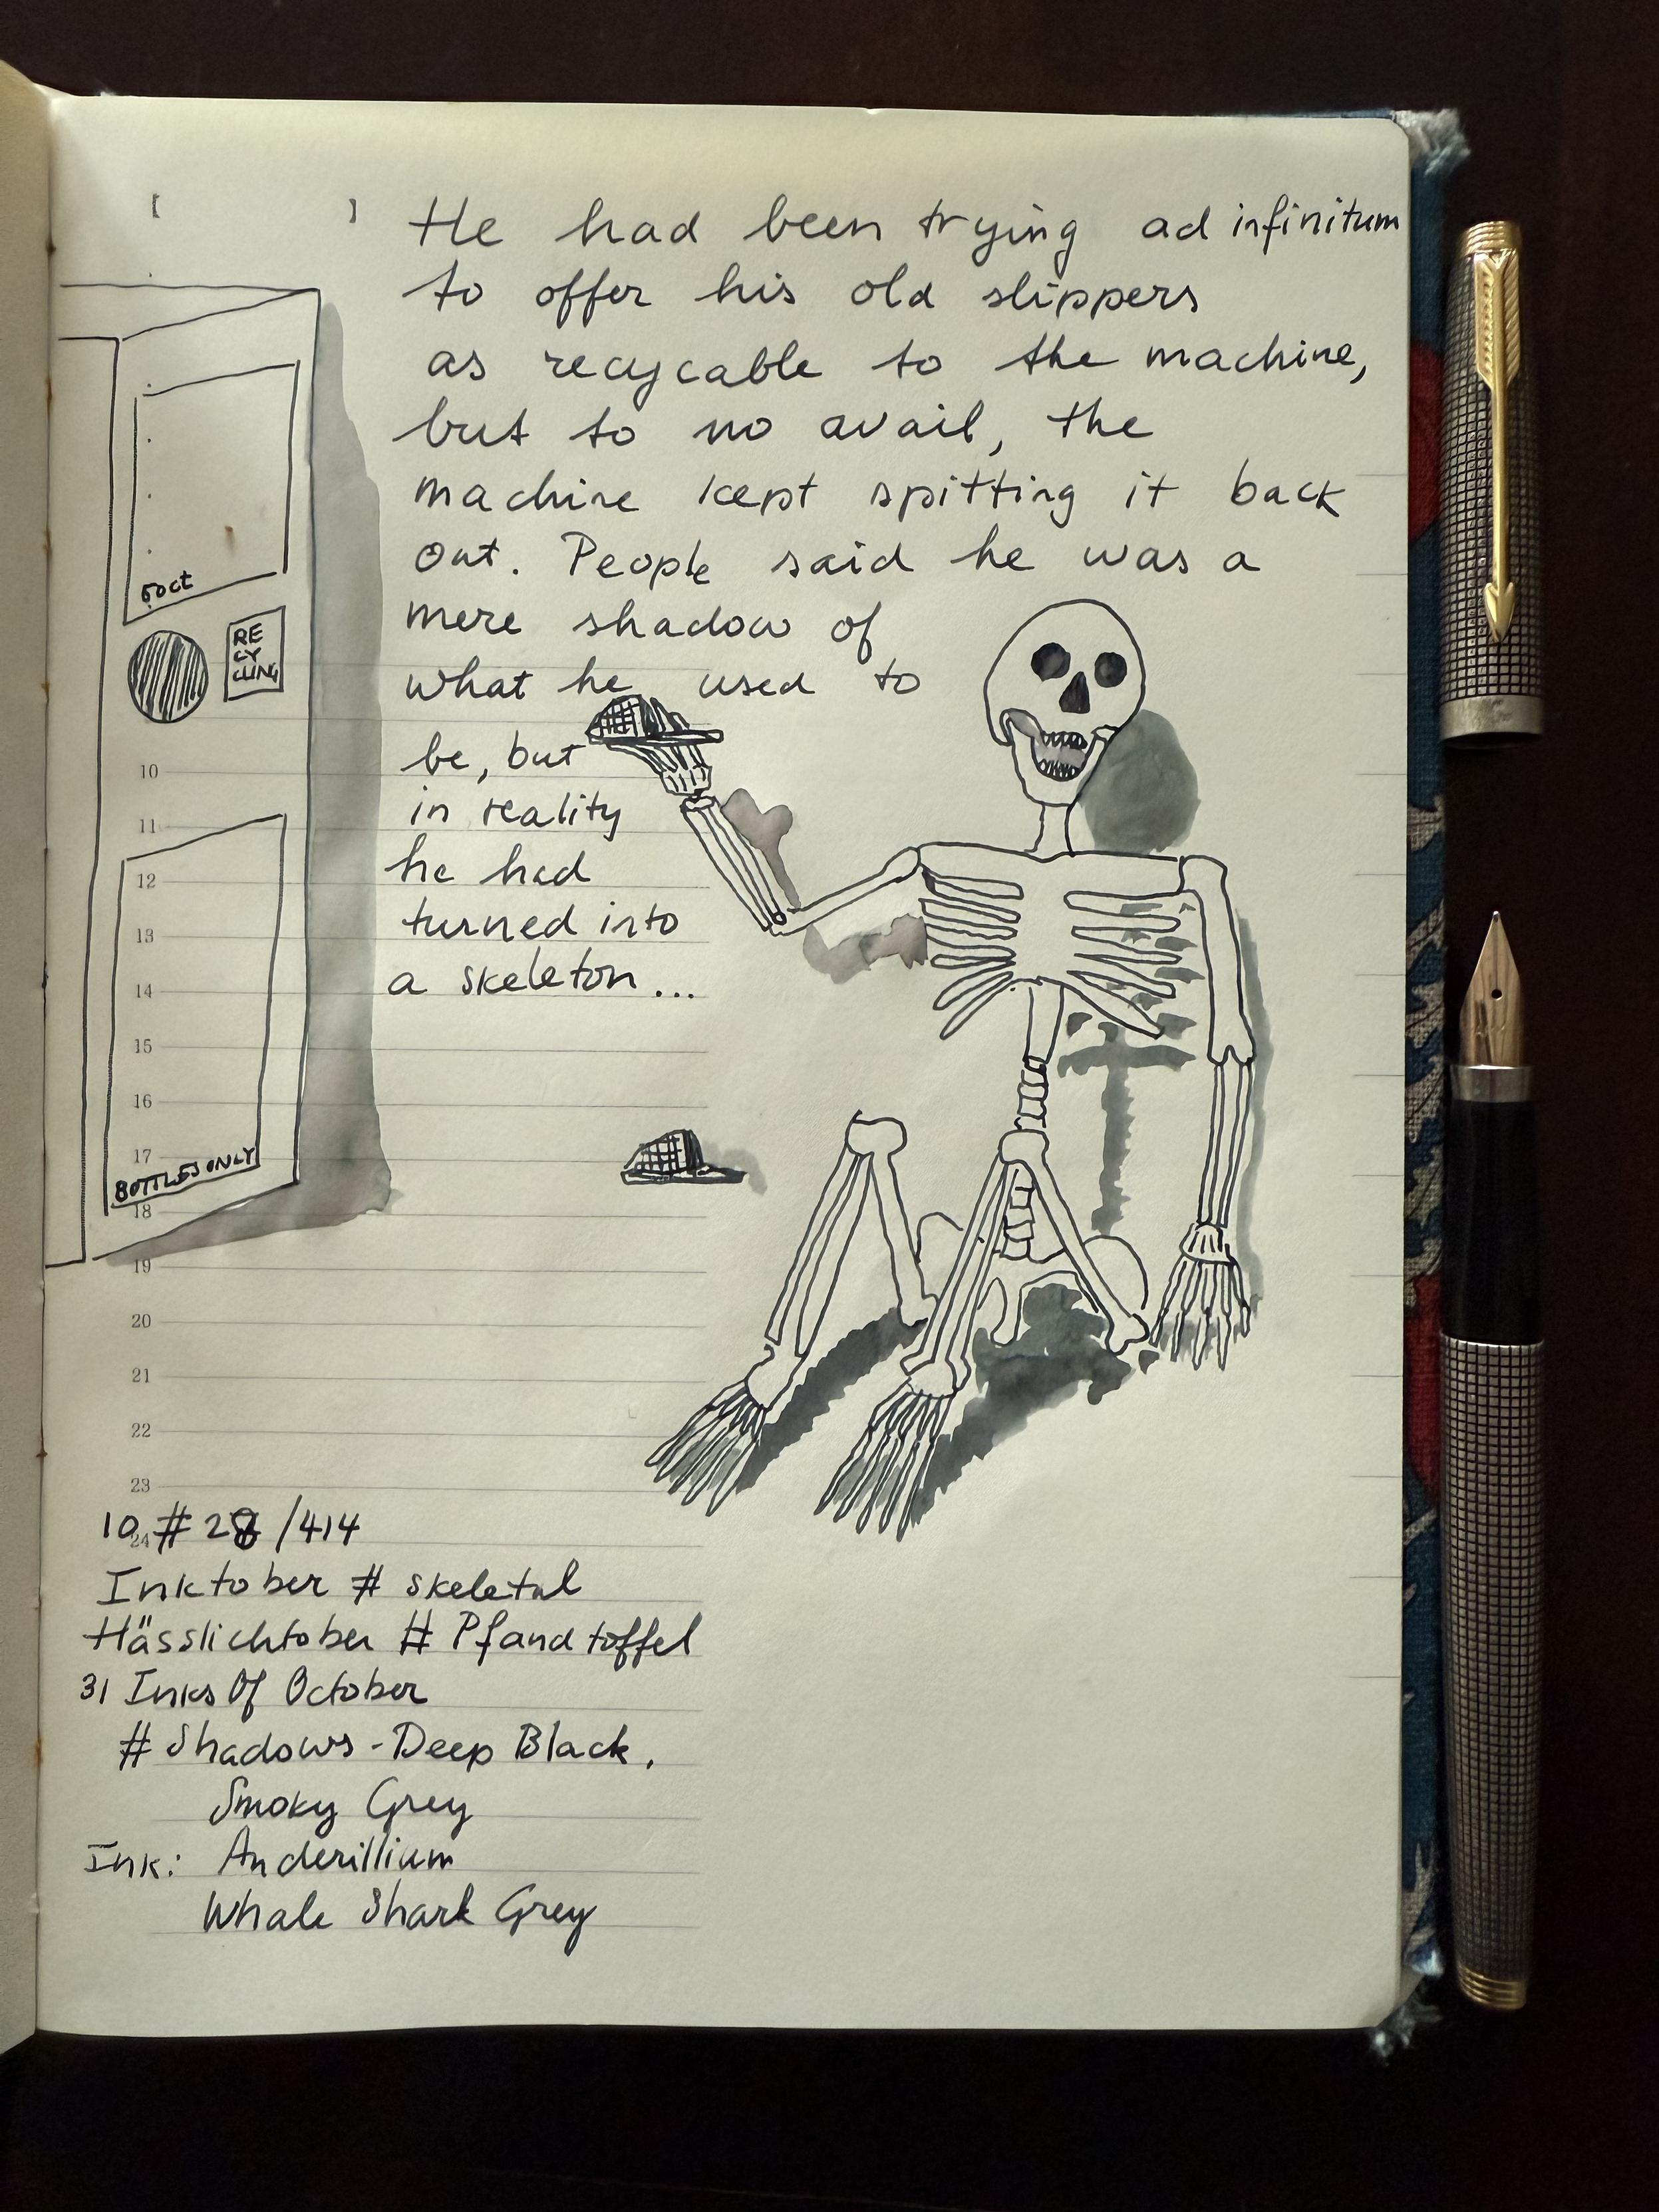 [ ]
He had been trying ad infinitum
to offer his old slippers
as recycable to the machine,
but to no avail, the
machine kept spitting it back
out. People said he was a
mere shadow of
what he used to
be, but
in reality
he had
turned into
a skeleton...
50ct
RE
CY
CLING
BOTTLES ONLY
10
11
12
13
14
15
16
17
18
19
20
21
22
23
24
10 # 28 /414
Inktober # skeletal
Hässlichtober # Pfandtoffel
31 Inks Of October
# Shadows - Deep Black,
Smoky Grey
Ink: Anderillium
Whale Shark Grey